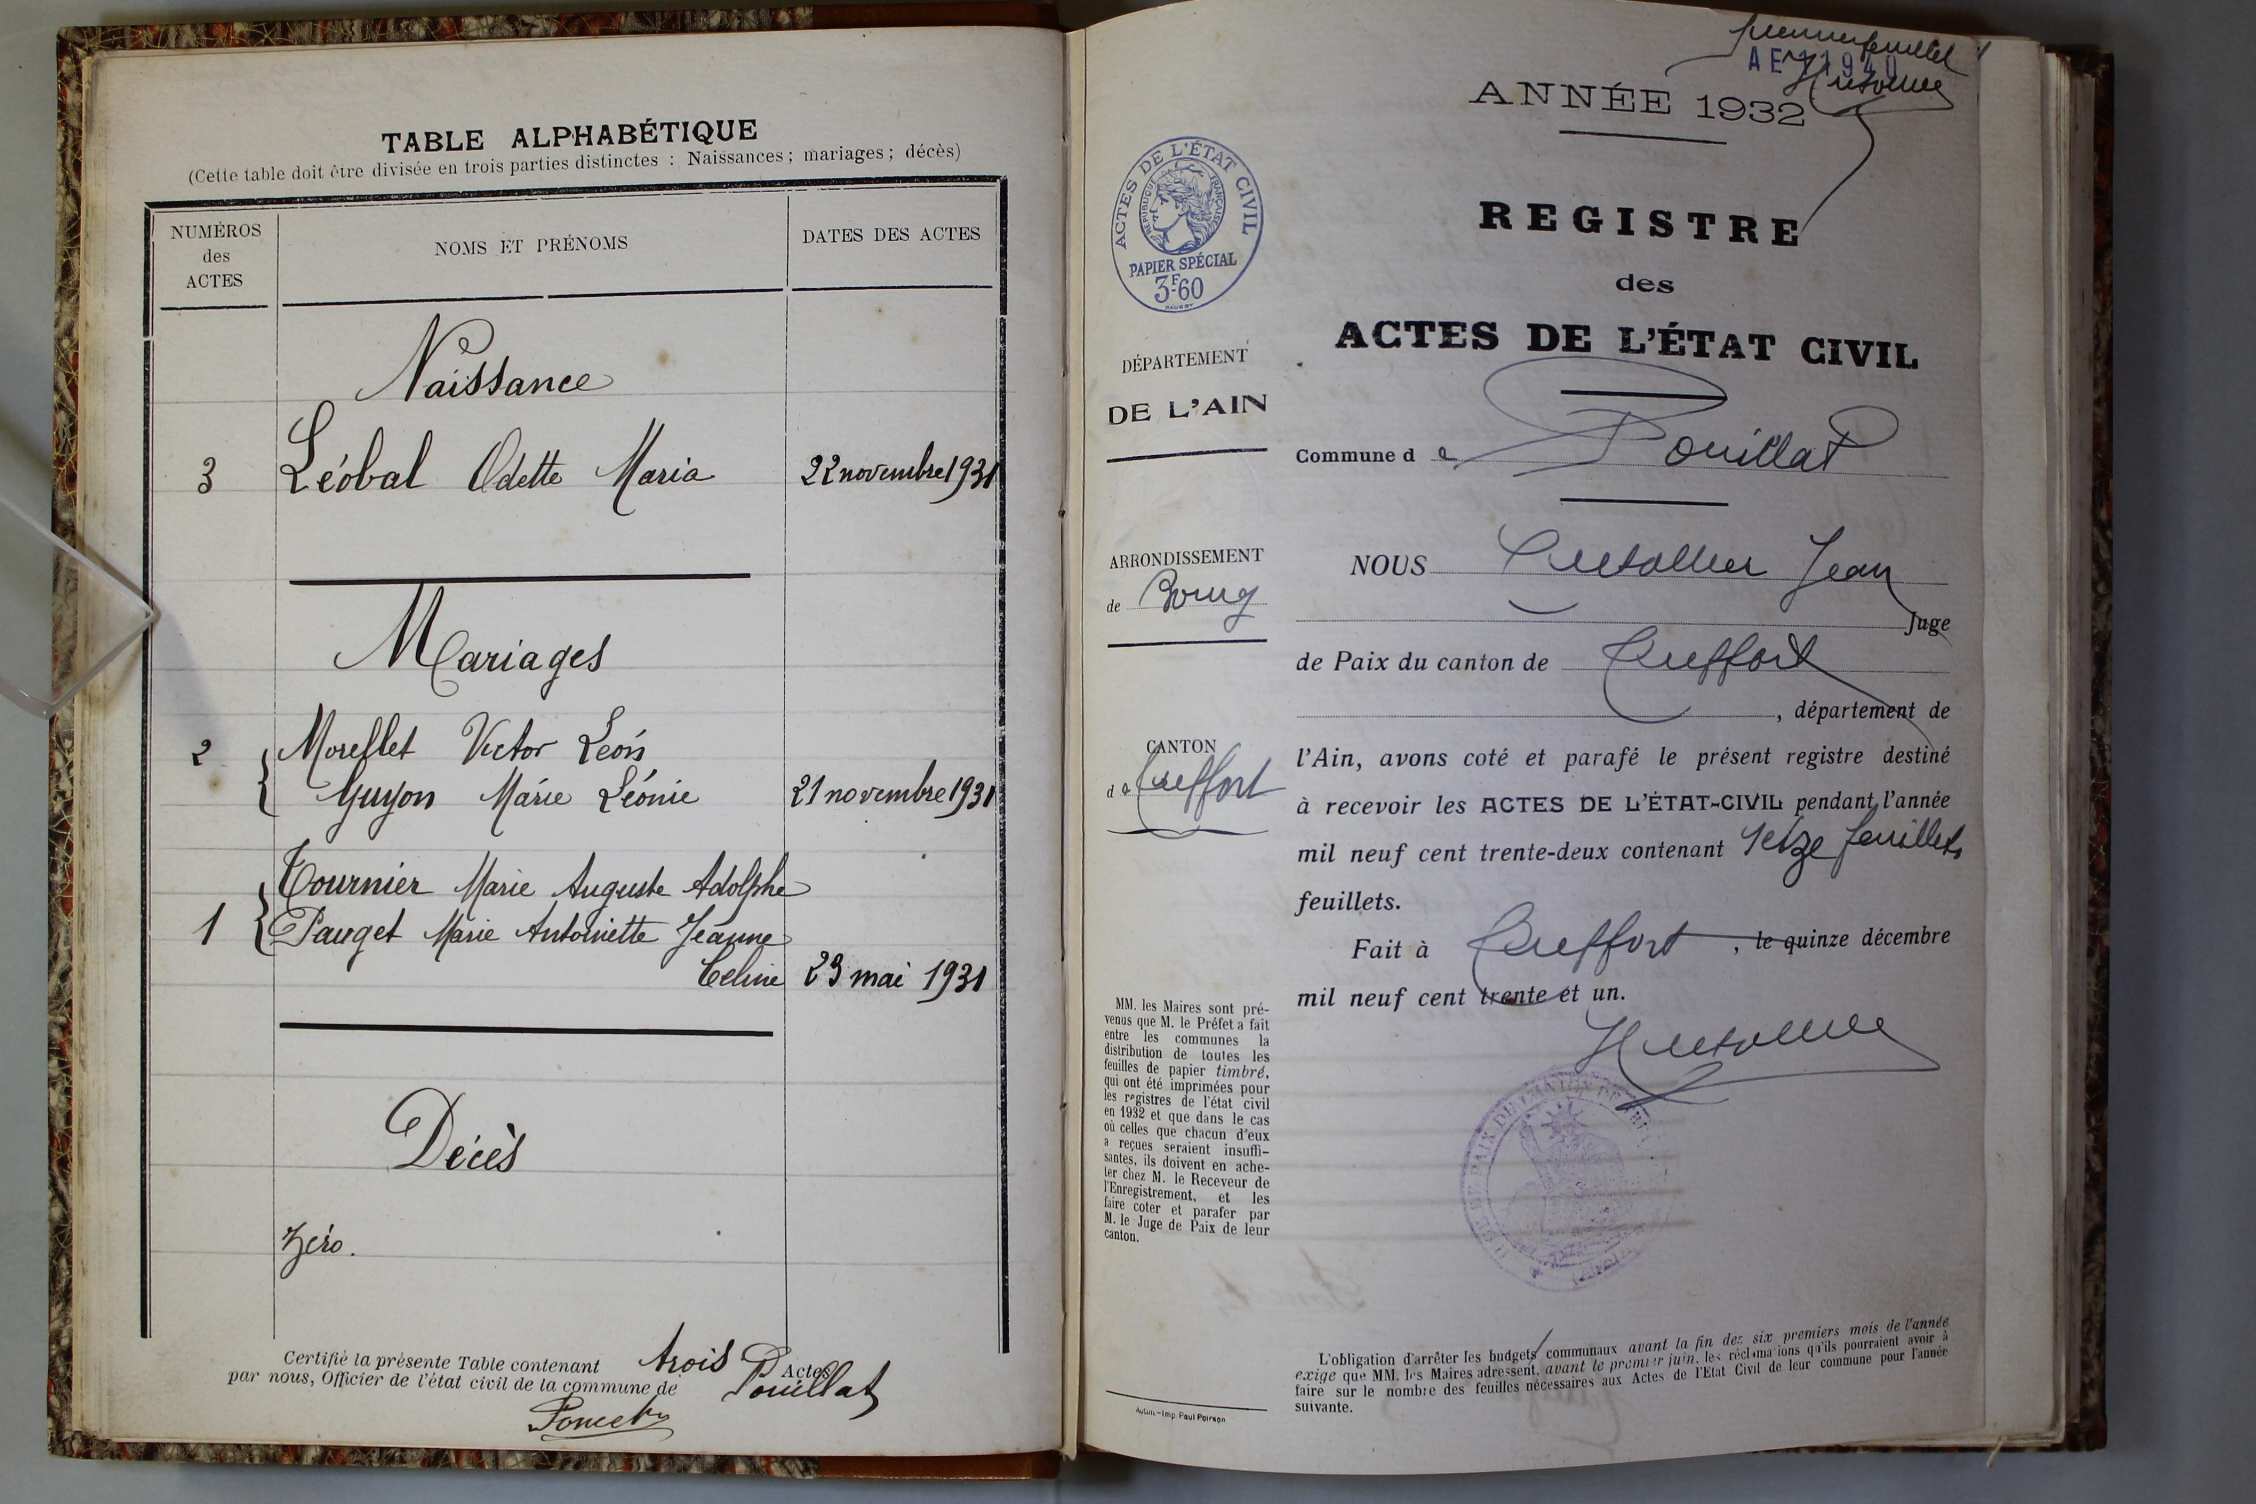 TABLE ALPHABÉTIQUE
(Cette table doit être divisée en trois parties distinctes : Naissances ; mariages ; décès)
NUMÉROS
des
ACTES
NOMS ET PRÉNOMS
DATES DES ACTES
Naissance
3 Léobal Odette Maria 22 novembre 1931
Mariages
2 Morellet Victor Léon
Guyon Marie Léonie 21 novembre 1931
Tournier Marie Auguste Adolphe
1 Pauget Marie Antoinette Jeanne
Celine 23 mai 1931
Décès
Zéro.
Certifié la présente Table contenant trois Actes
par nous, Officier de l'état civil de la commune de Pouillat
Poncet
premier feuillet
AE 11940
ANNÉE 1932
ACTES DE L'ÉTAT CIVIL
RÉPUBLIQUE FRANÇAISE
PAPIER SPÉCIAL
3F-60
REGISTRE
des
ACTES DE L'ÉTAT CIVIL
DÉPARTEMENT
DE L'AIN
Commune de Pouillat
ARRONDISSEMENT
de Bourg
NOUS Jean
Juge
de Paix du canton de Treffort
, département de
CANTON
de Treffort
l'Ain, avons coté et parafé le présent registre destiné
à recevoir les ACTES DE L'ÉTAT-CIVIL pendant l'année
mil neuf cent trente-deux contenant seize feuillets
feuillets.
Fait à Treffort, le quinze décembre
mil neuf cent trente et un.
MM. les Maires sont pré-
venus que M. le Préfet a fait
entre les communes la
distribution de toutes les
feuilles de papier timbré,
qui ont été imprimées pour
les registres de l'état civil
en 1932 et que dans le cas
où celles que chacun d'eux
a reçues seraient insuffi-
santes, ils doivent en ache-
ter chez M. le Receveur de
l'Enregistrement, et les
faire coter et parafer par
M. le Juge de Paix de leur
canton.
L'obligation d'arrêter les budgets communaux avant la fin des six premiers mois de l'année
exige que MM. les Maires adressent, avant le premier juin, les réclamations qu'ils pourraient avoir à
faire sur le nombre des feuilles nécessaires aux Actes de l'Etat Civil de leur commune pour l'année
suivante.
Autun.-Imp. Paul Poirson